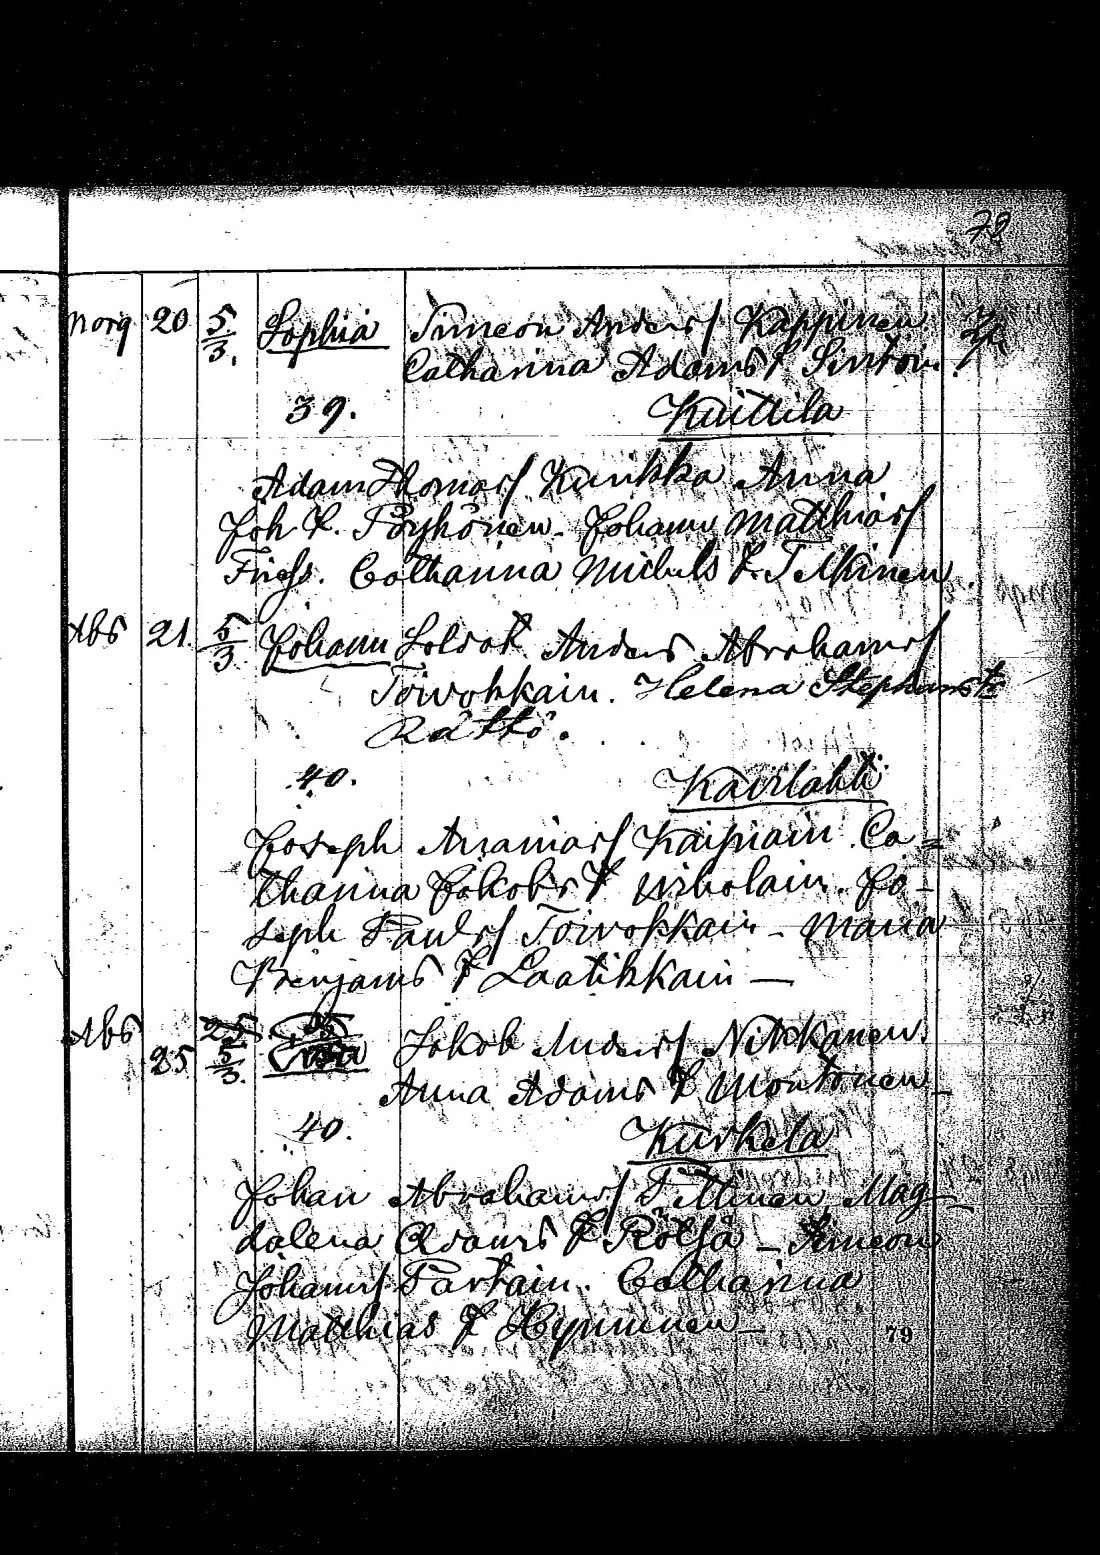 78
Norg 20 5/3. Sophia Simeon Anders/ Kappinen
Catharina Adams D. Sintoin.
39. Kuittila
Adam Thomas/ Kurikka Anna
Joh D. Pöyhönen. Johann Matthias/
Catharina Michels D. Tillkinen.
Abs 21. 5/3 Johann Soldat Anders Abrahams/
Toivohkain. Helena Stephans D.
Rättö.
40. Kavilahti
Joseph Ananias/ Kaipiain. Ca=
tharina Jakobs D Jo-
seph Pauls/ Toivokkain - Maria
Benjams D Laatikkain —
Abs 25 5/3. Jakob Anders/ Nikkanen.
Anna Adams D Montonen -
40. Kurkela
Johan Abrahams/ Tillinen Mag-
dalena Adams D Rölsä - Simeon
Johanns/ Partain. Catharina
Matthias D Hynninen -
79